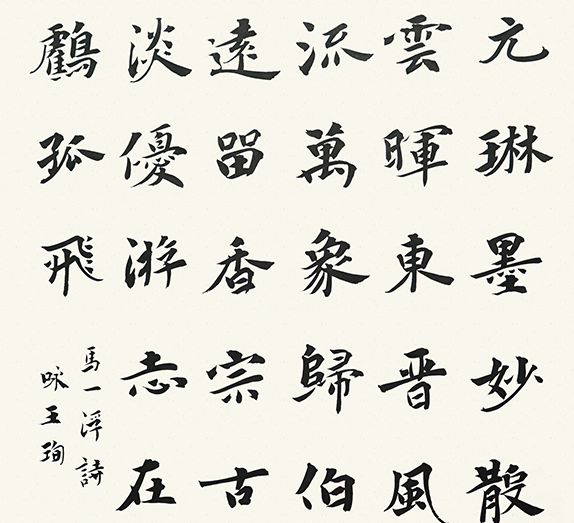 元琳墨妙散
雲暉東晉風
流萬象歸伯
遠㽞香宗古
淡優游志在
鸖孤飛
馬一浮詩
咏王珣